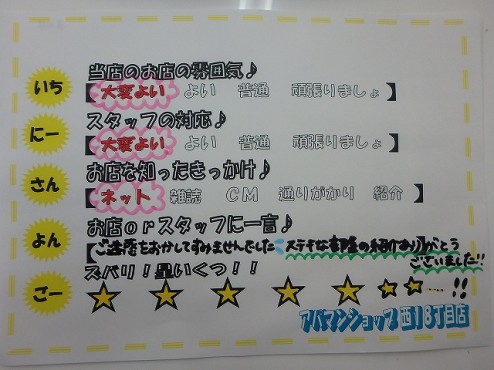 いち
当店のお店の雰囲気♪
【 大変よい よい 普通 頑張りましょ 】
にー
スタッフの対応♪
【 大変よい よい 普通 頑張りましょ 】
さん
お店を知ったきっかけ♪
【 ネット 雑誌 CM 通りがかり 紹介 】
よん
お店orスタッフに一言♪
【ご迷惑をおかしてすみませんでした ステキなお部屋の紹介ありがとう
ございました!!
ごー
ズバリ!星いくつ!!
☆ ☆ ☆ ☆ ☆ ☆ ☆ …… !!
アパマンショップ 西18丁目店